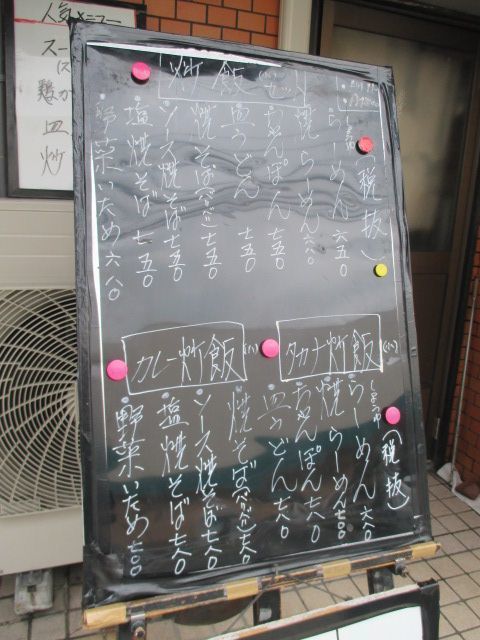 人気メニュー
スー
鶏か
皿
炒
炒飯
(税抜)
らーめん 六五〇
焼らーめん 六
ちゃんぽん 七五〇
皿うどん 七五〇
焼そば 七五〇
ソース焼そば 七五〇
塩焼そば 七五〇
野菜いため 六八〇
タカナ炒飯(小)
カレー炒飯(小)
(税抜)
しょうゆ
らーめん 六八〇
焼らーめん 七〇〇
ちゃんぽん 七八〇
皿うどん 七八〇
焼そば 七八〇
ソース焼そば 七八〇
塩焼そば 七八〇
野菜いため 七〇〇